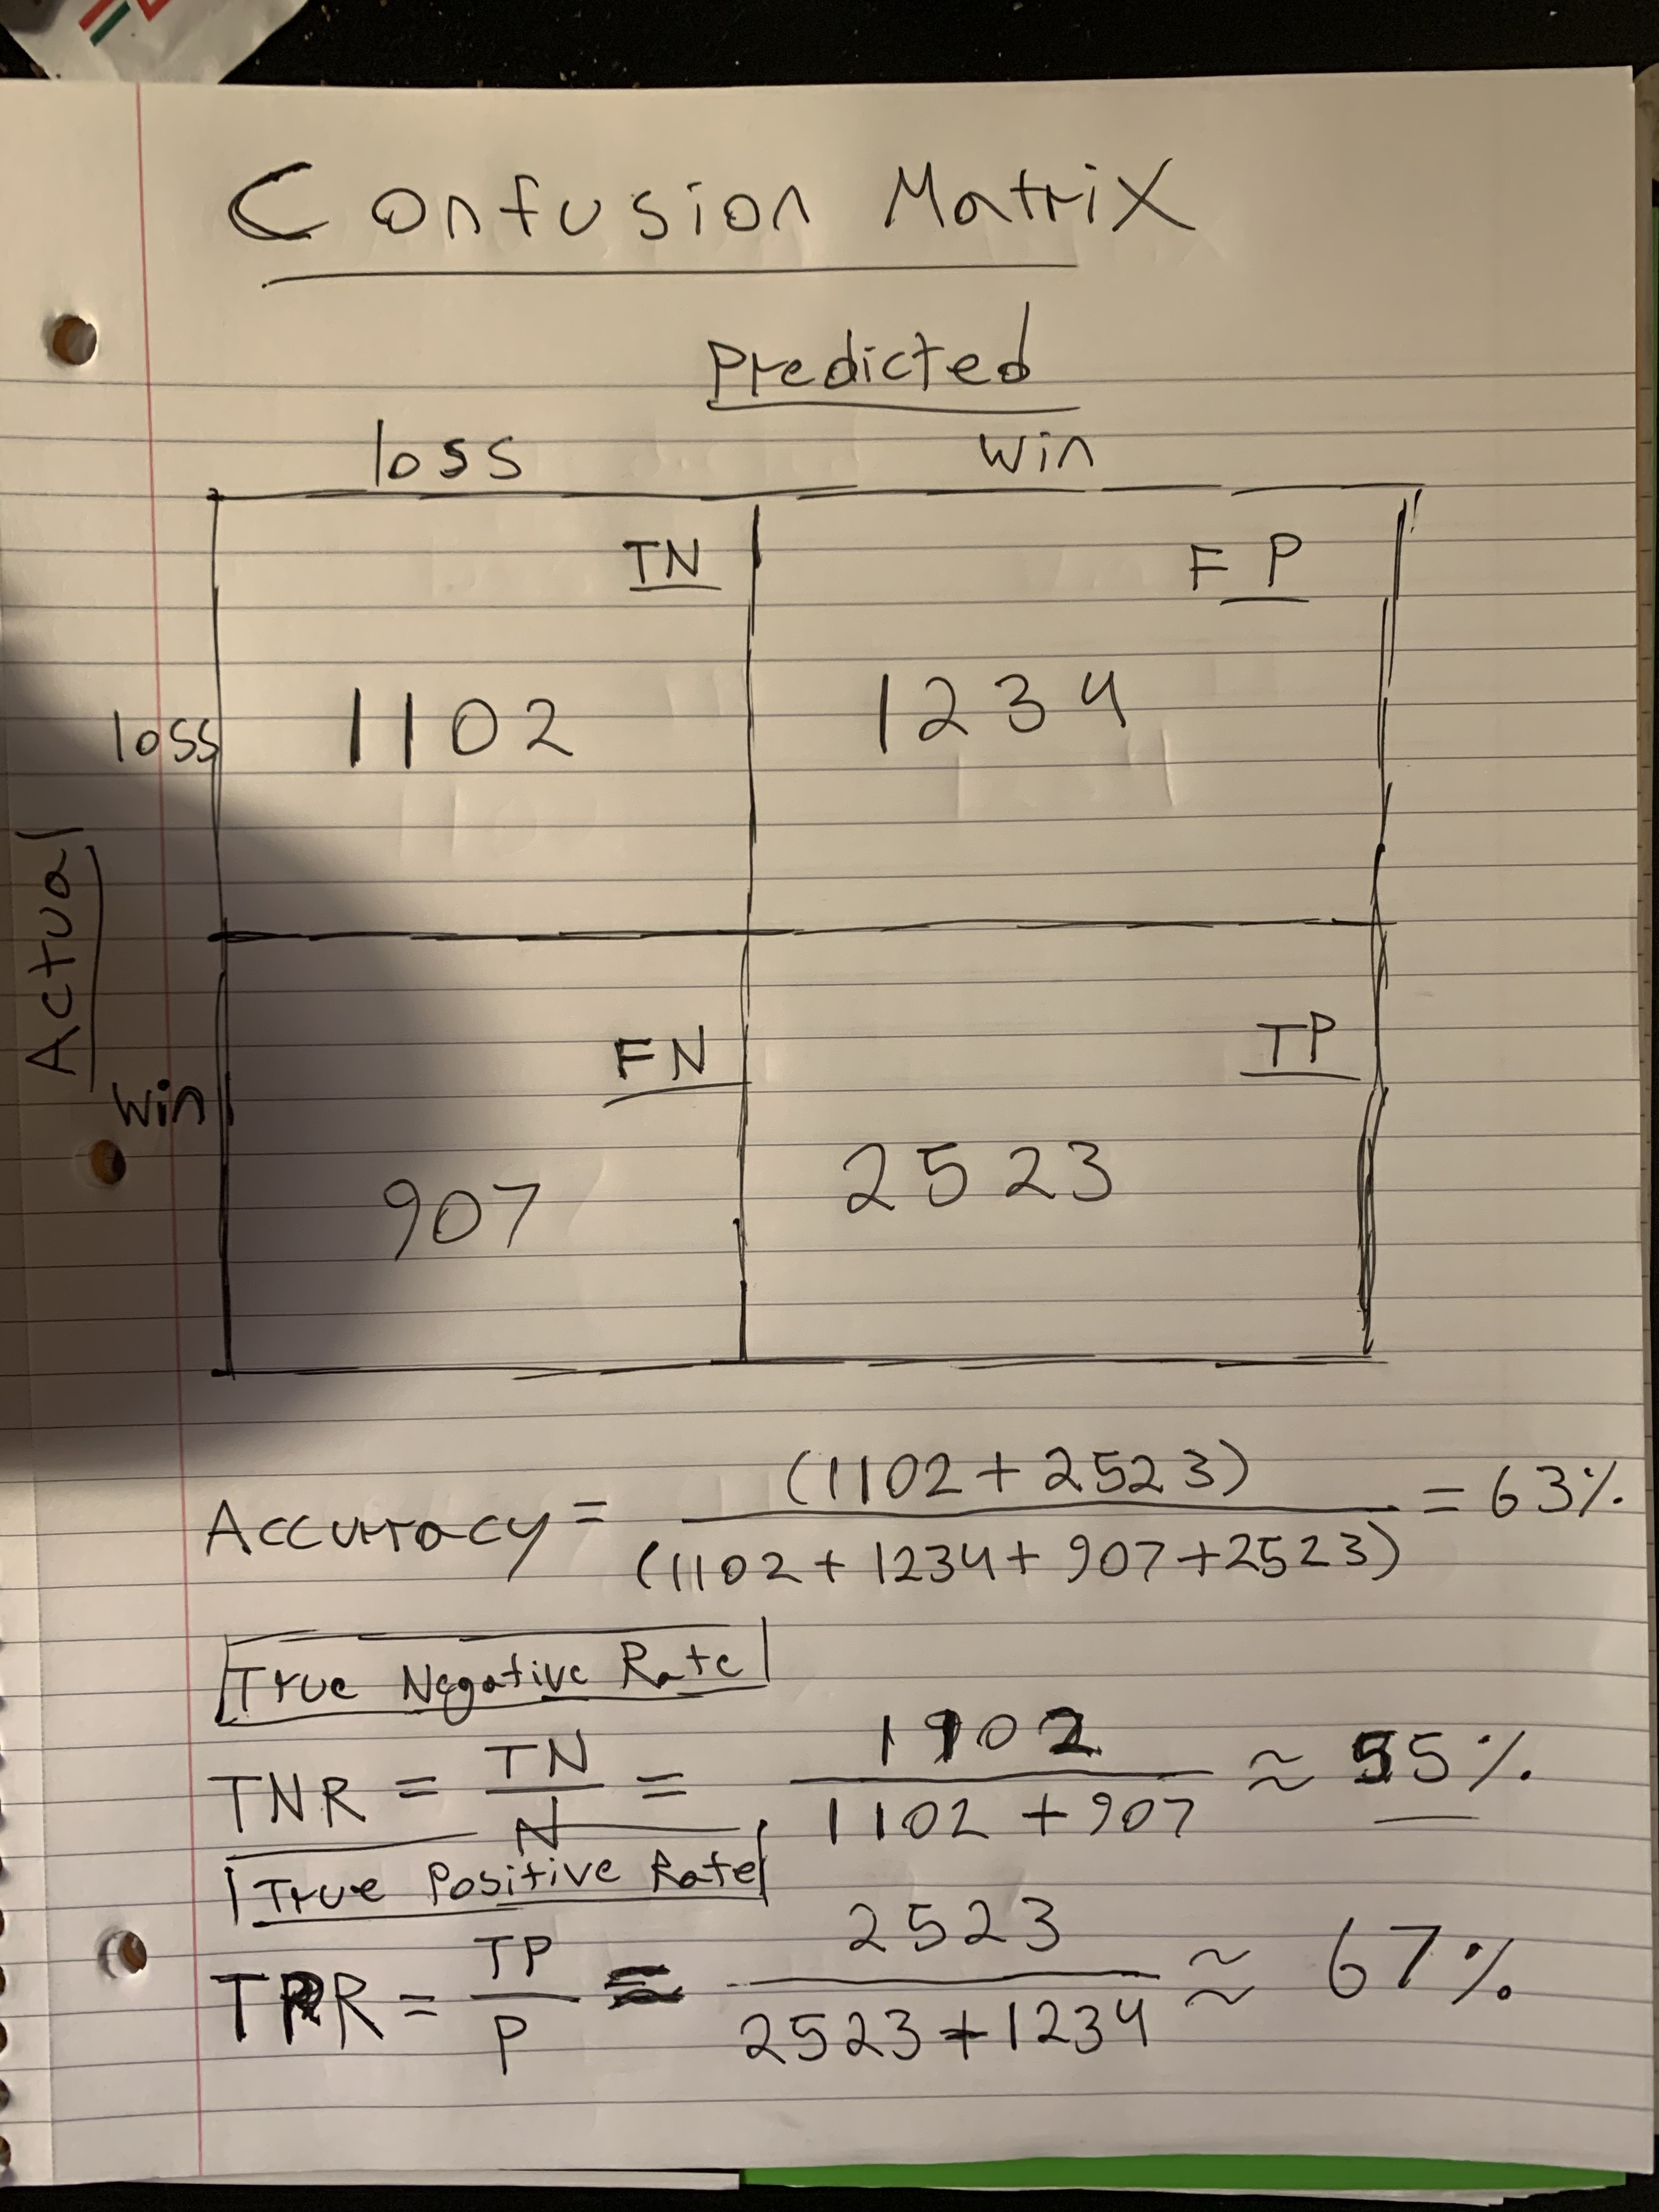 Confusion Matrix
Predicted
loss win
TN FP
loss 1102 1234
Actual
FN TP
win
907 2523
Accuracy = (1102 + 2523) / (1102 + 1234 + 907 + 2523) = 63%
True Negative Rate
TNR = TN / N = 1102 / 1102 + 907 ≈ 55%
True Positive Rate
TPR = TP / P = 2523 / 2523 + 1234 ≈ 67%